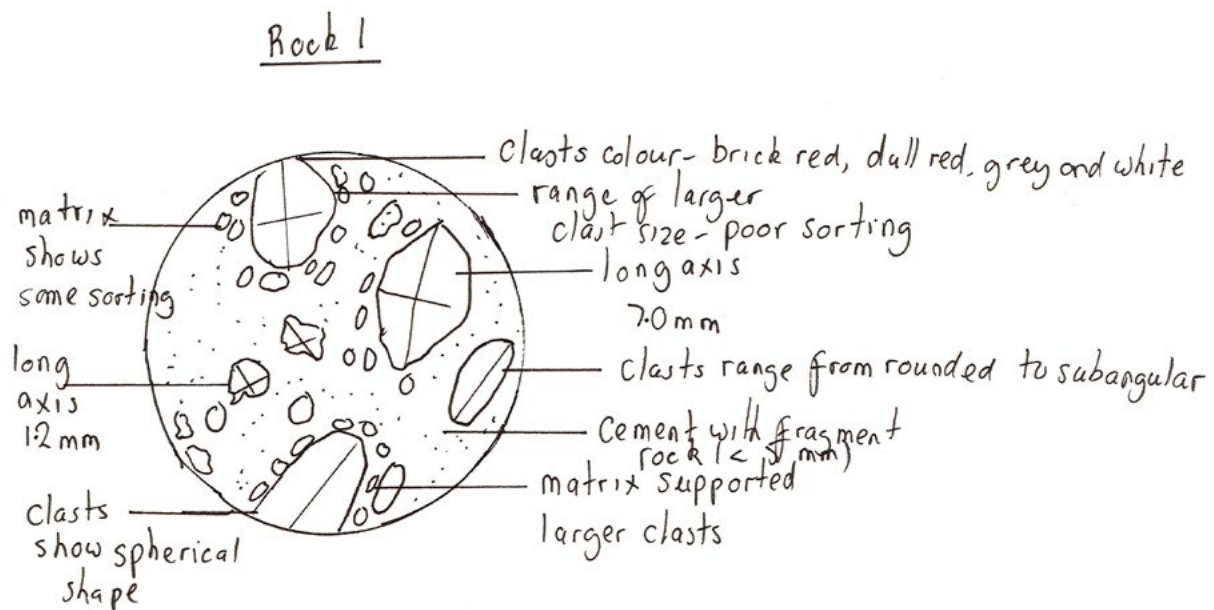 Rock 1
clasts colour- brick red, dull red, grey and white
range of larger
clast size - poor sorting
long axis
7.0 mm
clasts range from rounded to subangular
cement with fragment
rock (< mm)
matrix supported
larger clasts
matrix
shows
some sorting
long
axis
1.2 mm
clasts
show spherical
shape